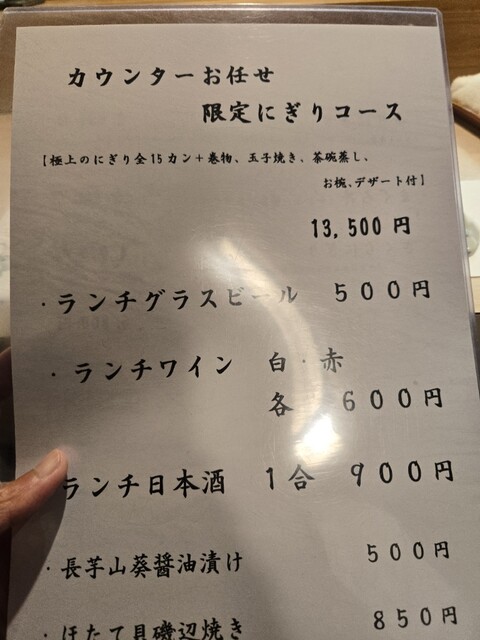 カウンターお任せ
限定にぎりコース
【極上のにぎり全15カン＋巻物、玉子焼き、茶碗蒸し、
お椀、デザート付】
13,500円
・ランチグラスビール 500円
・ランチワイン 白・赤
各 600円
ランチ日本酒 1合 900円
・長芋山葵醤油漬け 500円
・ほたて貝磯辺焼き 850円